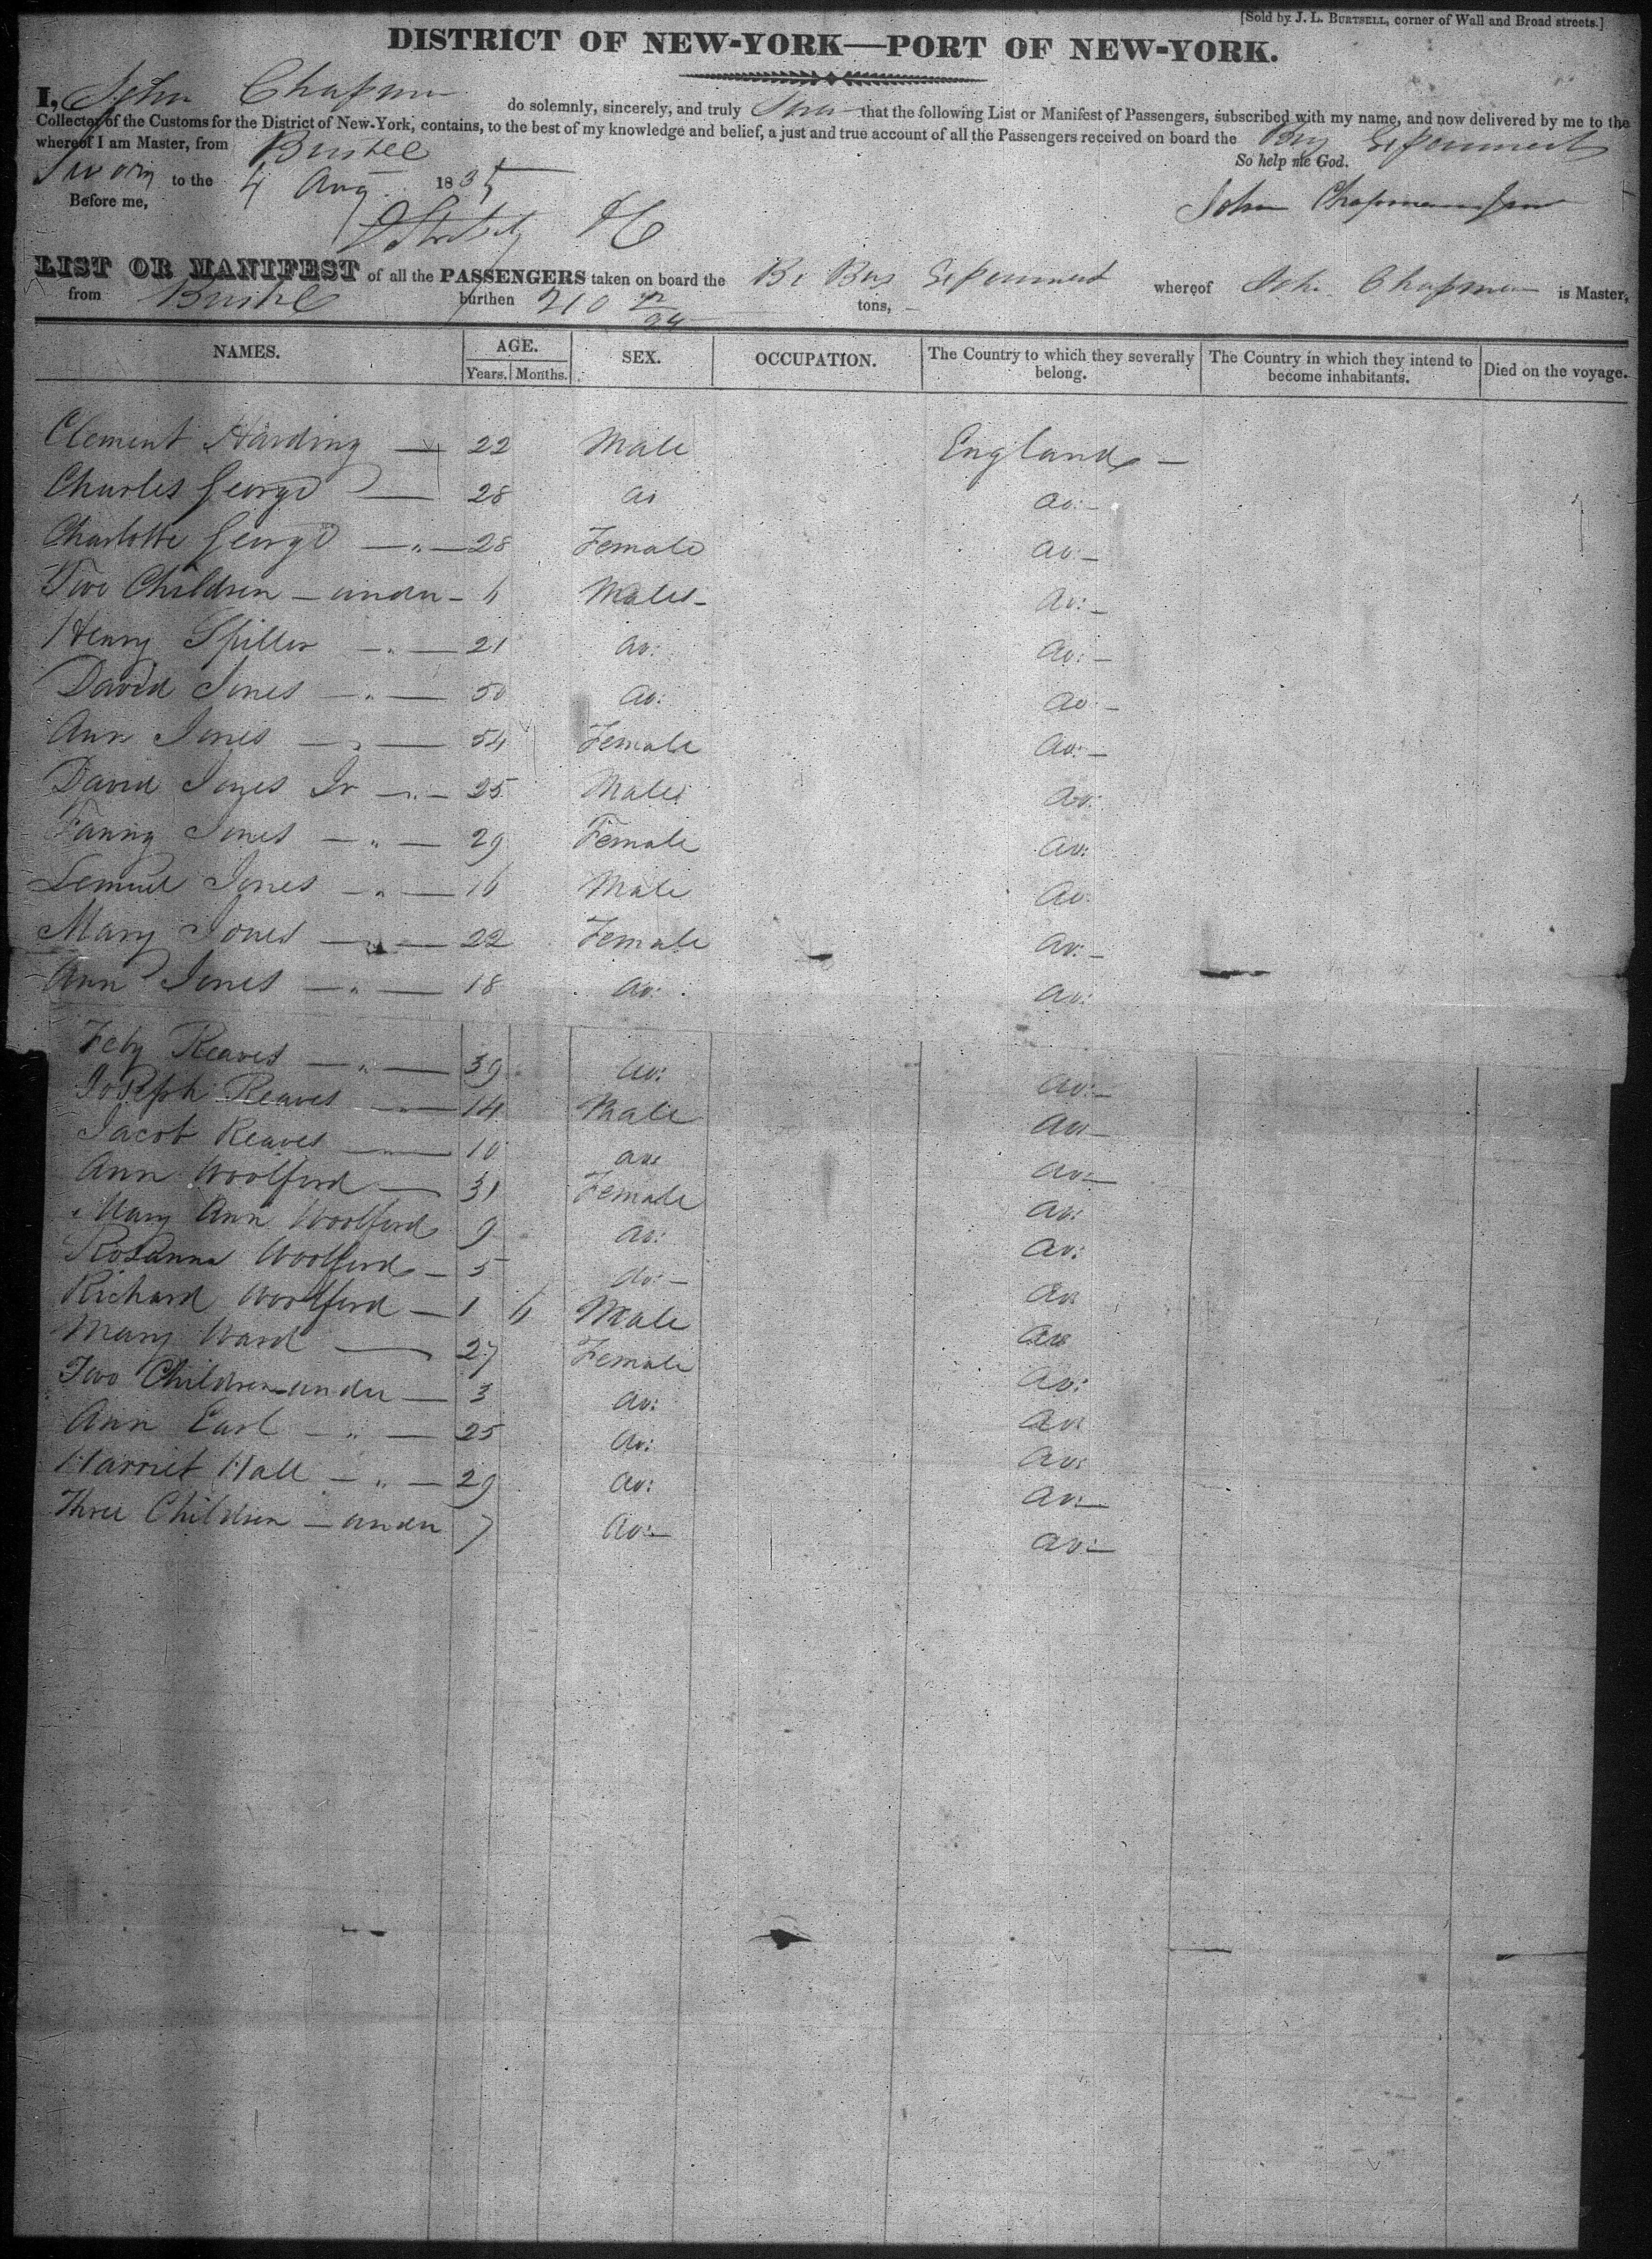 [Sold by J. L. BURTSELL, corner of Wall and Broad streets.]
DISTRICT OF NEW-YORK—PORT OF NEW-YORK.
I, John Chapman do solemnly, sincerely, and truly that the following List or Manifest of Passengers, subscribed with my name, and now delivered by me to the
Collector of the Customs for the District of New-York, contains, to the best of my knowledge and belief, a just and true account of all the Passengers received on board the Brig Experiment
whereof I am Master, from Bristol
So help me God.
Sworn to the 4 Aug 1835
John Chapman
Before me,
LIST OR MANIFEST of all the PASSENGERS taken on board the Br Brig Experiment whereof John Chapman is Master,
from Bristol burthen 210 tons,
NAMES. AGE. SEX. OCCUPATION. The Country to which they severally belong. The Country in which they intend to become inhabitants. Died on the voyage.
Years. Months.
Clement Harding — 22 Male England —
Charles George — 28 do do: —
Charlotte George — " — 28 Female do: —
Two Children — under — 6 Males — do: —
Henry Spiller — " — 21 do: do: —
David Jones — " — 50 do: do: —
Ann Jones — " — 54 Female do: —
David Jones Jr — " — 25 Male do:
Fanny Jones — " — 29 Female do:
Lemuel Jones — " — 16 Male do:
Mary Jones — " — 22 Female do: —
Ann Jones — " — 18 do: do:
Feby Reaves — " — 39 do: do: —
Joseph Reaves — " — 14 Male do: —
Jacob Reaves — " — 10 do: do: —
Ann Woolford — 31 Female do:
Mary Ann Woolford 9 do: do:
Rosanna Woolford — 5 do: — do:
Richard Woolford — 1 6 Male do:
Mary Ward — 27 Female do:
Two Children under — 3 do: do:
Ann Earl — " — 25 do: do:
Harriet Hall — " — 29 do: do: —
Three Children — under 7 do: — do: —